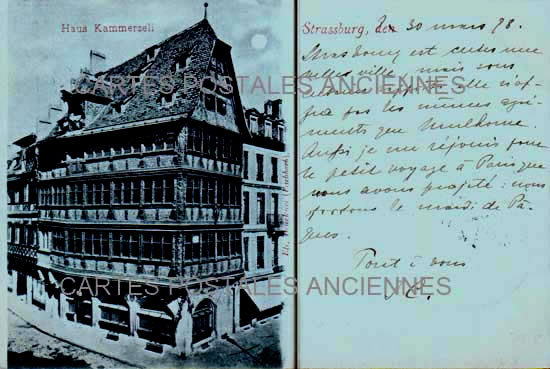 Haus Kammerzell
Strassburg, den 30 mars 98.
Strasbourg est certes une
belle ville, mais sous
rapport elle n'of-
fre pas les mêmes agré-
ments que Mulhouse.
Aussi je me réjouis pour
le petit voyage à Paris que
nous avons projeté: nous
partons le mardi de Pâ-
ques.
Tout à vous
CARTES POSTALES ANCIENNES
CARTES POSTALES ANCIENNES